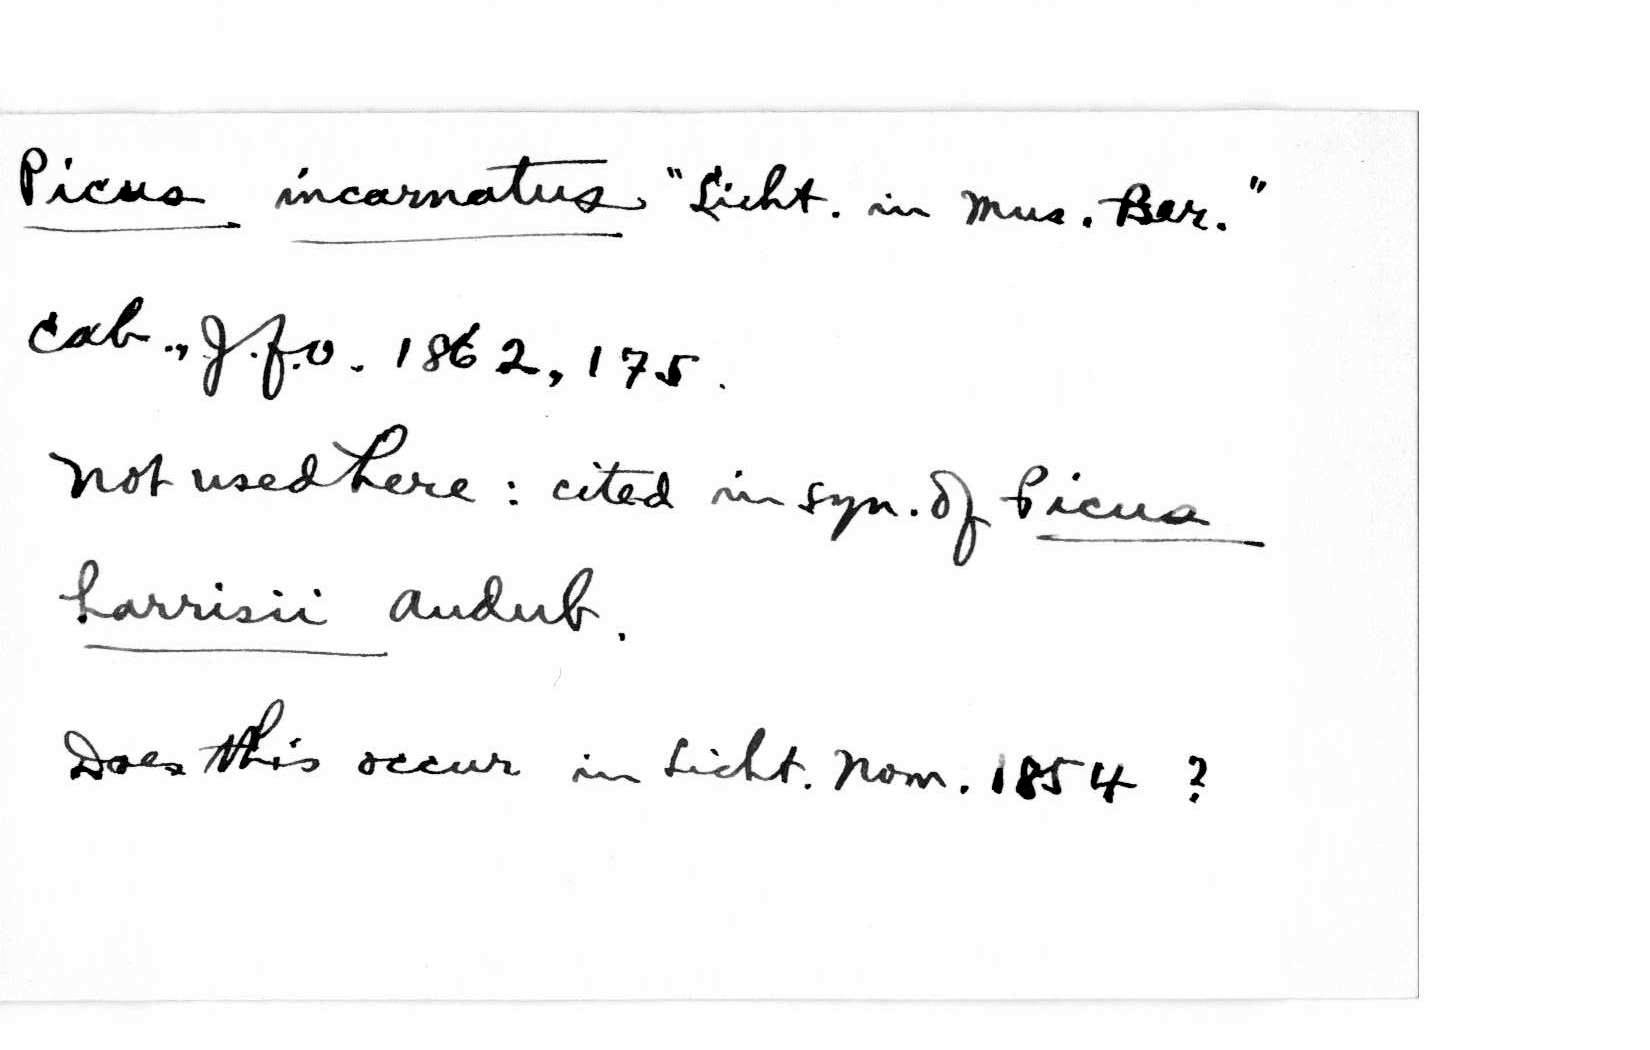 Picus incarnatus "Licht. in Mus. Ber."
Cab., J.f.O. 1862, 175.
Not used here : cited in syn. of Picus
harrisii Audub.
Does this occur in Licht. Nom. 1854 ?